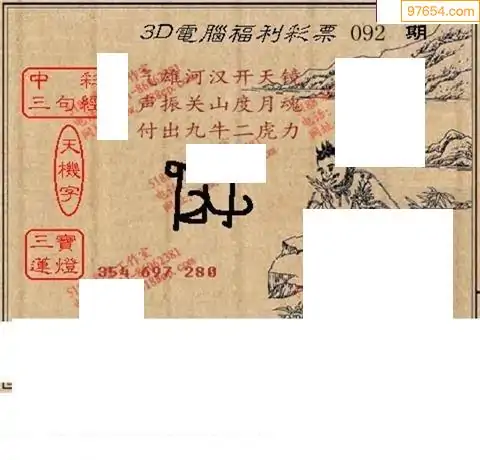 97654.com
3D電腦福利彩票 092 期
中 彩
三句經
气雄河汉开天镜
声振关山度月魂
付出九牛二虎力
天機字
三寶
蓮燈
354 697 280